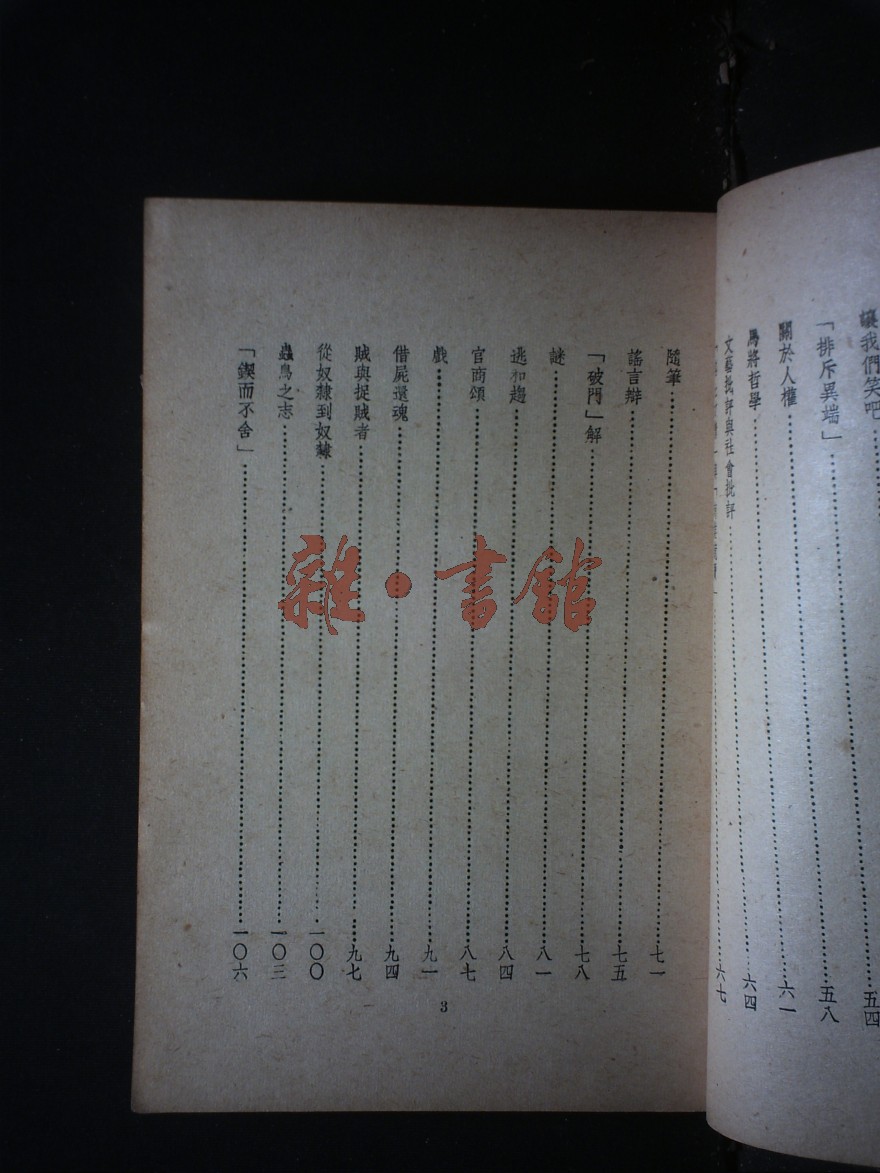 讓我們笑吧……五四
「排斥異端」……五八
關於人權……六一
馬將哲學……六四
文藝批評與社會批評……六七
隨筆……七一
謠言辯……七五
「破門」解……七八
謎……八一
逃和趨……八四
官商頌……八七
戲……九一
借屍還魂……九四
賊與捉賊者……九七
從奴隸到奴隸……一〇〇
蟲鳥之志……一〇三
「鍥而不舍」……一〇六
3
雜·書館